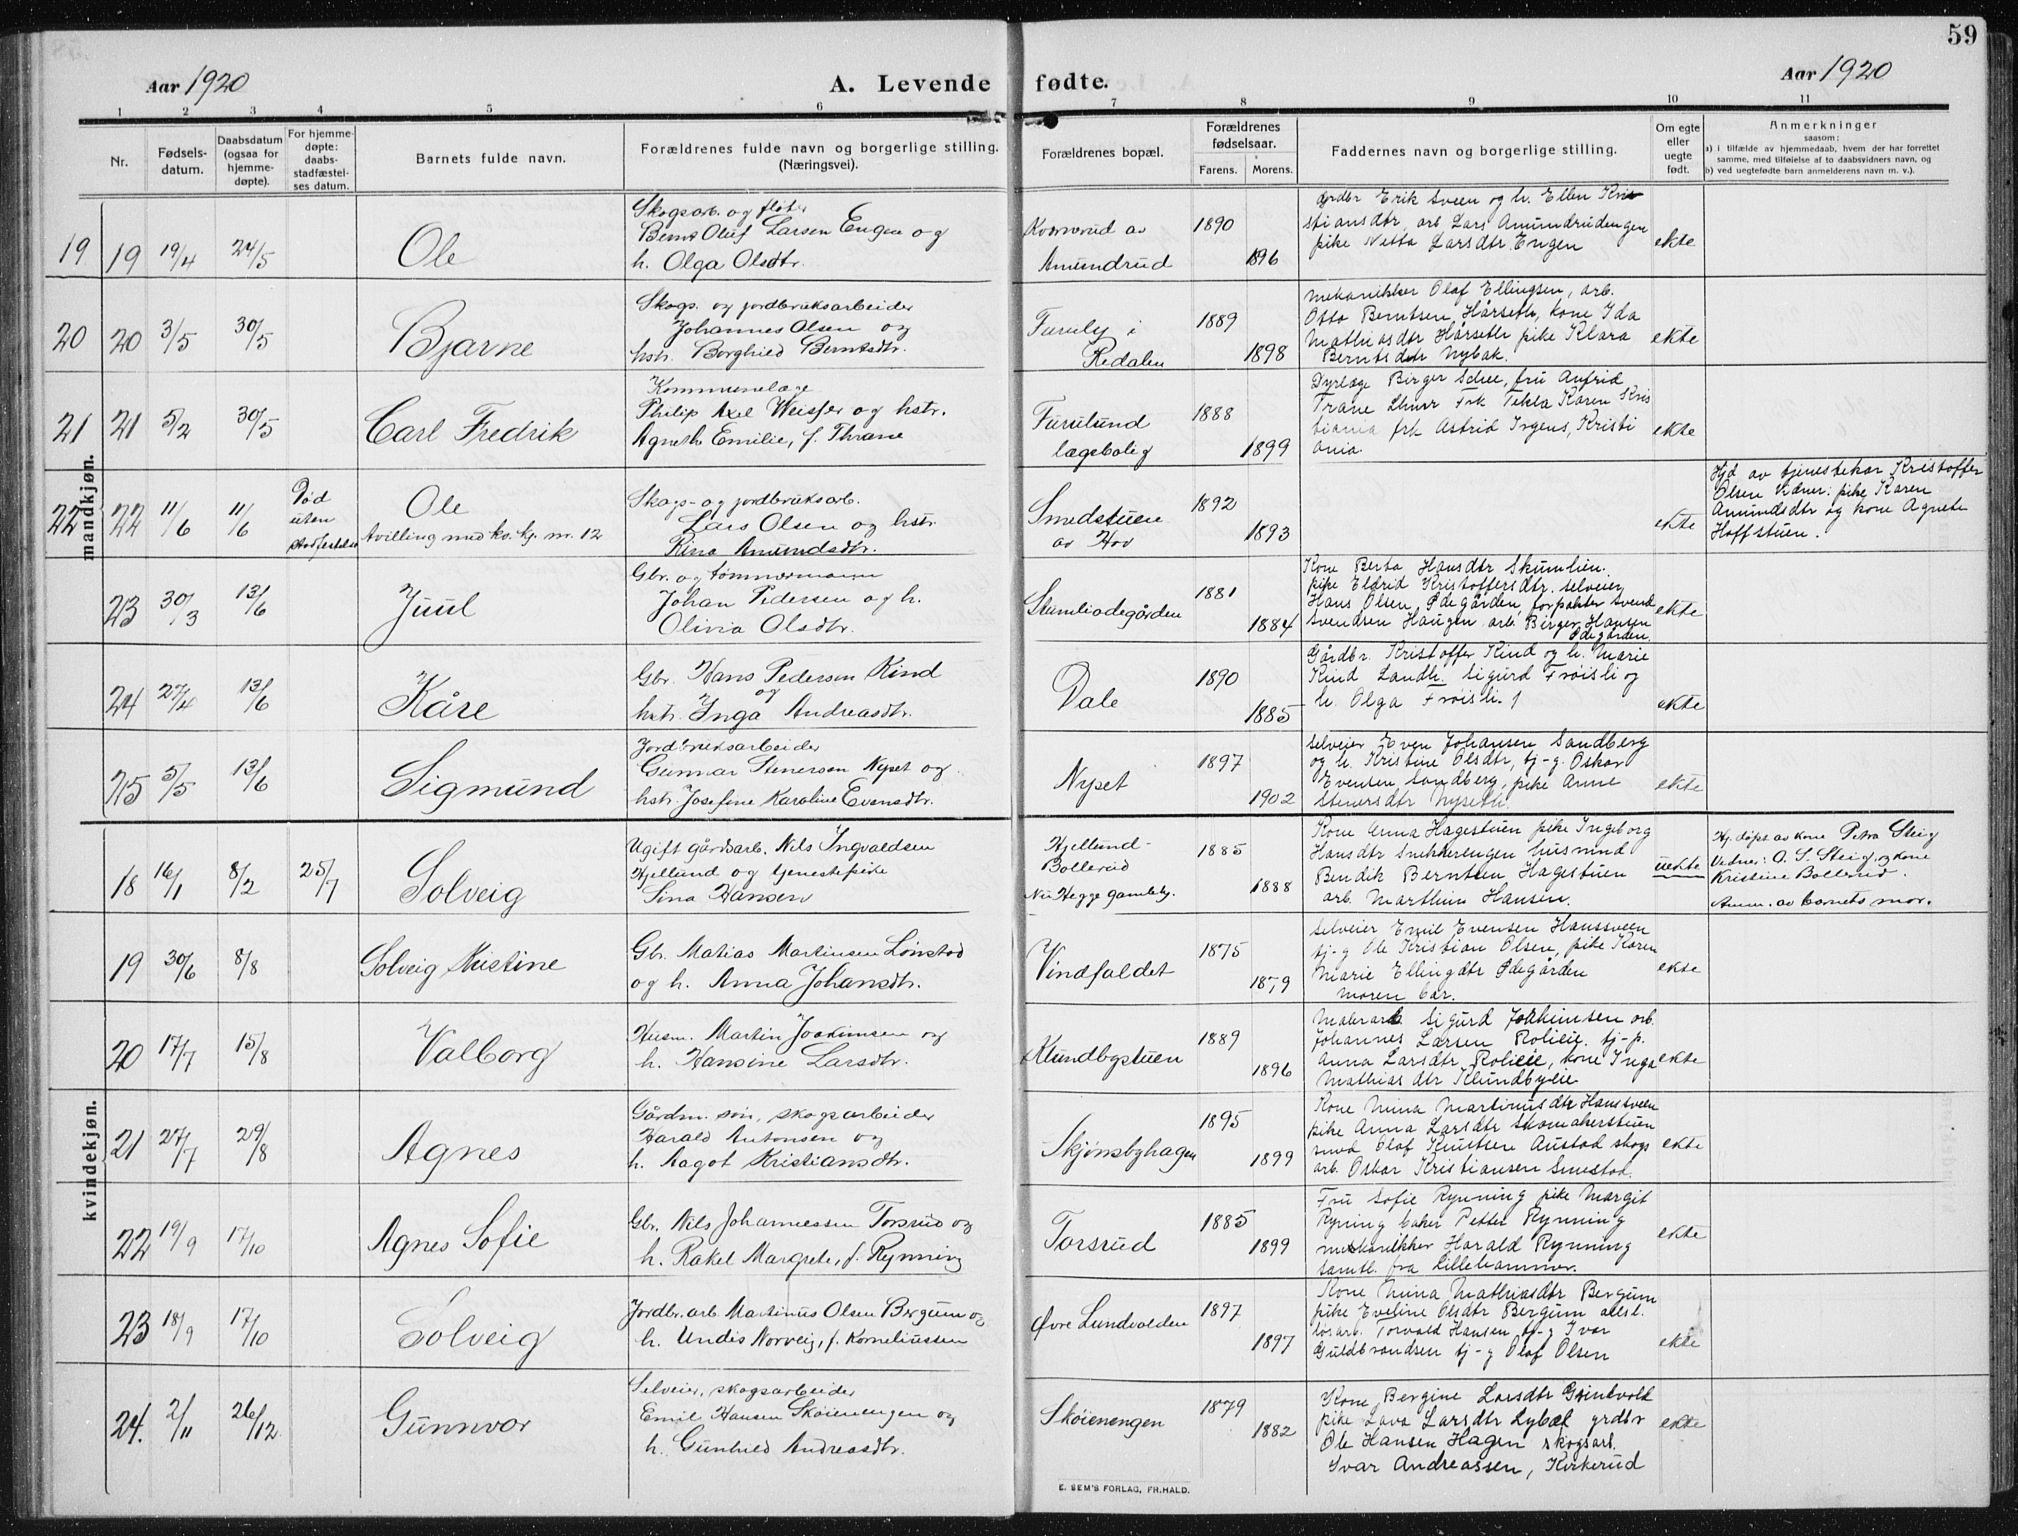 59
Aar 1920
A. Levende fødte.
Aar 1920
1 2 3 4 5 6 7 8 9 10 11
Nr.
Fødsels-
datum.
Daabsdatum
(ogsaa for
hjemme-
døpte).
For hjemme-
døpte:
daabs-
stadfæstel-
ses datum.
Barnets fulde navn.
Forældrenes fulde navn og borgerlige stilling.
(Næringsvei).
Forældrenes bopæl.
Forældrenes
fødselsaar.
Farens. Morens.
Faddernes navn og borgerlige stilling.
Om egte
eller
uegte
født.
Anmerkninger
saasom:
a) i tilfælde av hjemmedaab, hvem der har forrettet
samme, med tilføielse af to daabsvidners navn, og
b) ved uegtefødte barn anmelderens navn m. v.).
mandkjøn.
19 19 19/4 24/5
Ole
Skogsarb. og fløter
Bernt Oluf Larsen Engen og
h. Olga Olsdtr.
Amundrud
1890
1896
Grdbr Erik Sveen og h. Ellen Kri
stiansdtr, arb Lars Amundrudengen
pike Netta Larsdtr Engen
ekte
20 20 3/5 30/5
Bjarne
Skogs. og jordbruksarbeider
Johannes Olsen og
hstr. Borghild Berntsdtr.
Furuly i
Redalen
1889
1898
Mekanikker Olaf Ellingsen, arb.
Otto Berntsen Hårseth, kone Ida
Mathiasdtr Hårseth pike Klara
Berntsdtr Nybak.
ekte
21 21 5/2 30/5
Carl Fredrik
Kommunelæge
Philip Axel Weisser og hstr.
Agneth Emilie, f. Thrane
Furulund
lægebolig
1888
1899
Dyrlæge Birger Schee, fru Anfrid
Trane Frk Tekla Karen Kris
tiania frk Astrid Irgens, Kristi
ania
ekte
22 22 11/6 11/6
Død
uten
stadfestelse
Ole
tvilling med kv. kj. nr. 12
Skogs- og jordbruksarb.
Lars Olsen og hstr.
Rina Amundsdtr.
Smedstuen
av Hov
1892
1893
ekte
Hjd av tjenestekar Kristoffer
Olsen Vidner: pike Karen
Amundsdtr og kone Agnete
Hoffstuen.
23 30/3 13/6
Juul
Gbr. og tømmermann
Johan Pedersen og h.
Olivia Olsdtr.
1881
1884
Kone Berta Hansdtr Skumlien.
pike Eldrid Kristoffersdtr. selveier
Hans Olsen Ødegården, forpakter Svend
Svendsen Haugen arb. Birger Hansen
Ødegården.
ekte
24 27/4 13/6
Kåre
Gbr. Hans Pedersen Kind
og
hstr. Inga Andreasdtr.
Dale
1890
1885
Gårdbr. Kristoffer Kind og h. Marie
Kind Landh. Sigurd Frøisli og
h. Olga Frøisli.
ekte
25 5/5 13/6
Sigmund
Jordbruksarbeider
Gunnar Stenersen Nyset og
hstr. Josefine Karoline Evensdtr.
Nyset
1897
1902
Selveier Even Johansen Sandberg
og h. Kristine Olsdtr, tj-g. Oskar
Evensen Sandberg, pike Anne
Stenersdtr Nyseth.
ekte
kvindekjøn.
18 16/1 8/2 25/7
Solveig
Ugift gårdsarb. Nils Ingvaldsen
Hjellund og tjenestepike
Lina Hansen
Hjellund-
Bollerud
Nu Hegge gamleby.
1885
1888
Kone Anna Hagestuen pike Ingeborg
Hansdtr Snekkerengen husmand
Bendik Berntsen Hagestuen
arb. Marthius Hansen.
uekte
Hj. døpt av kone Petra Steig
Vidner: O. S. Steig, og kone
Kristine Bollerud.
Anm. av barnets mor.
19 30/6 8/8
Solveig Kristine
Gbr. Matias Martinsen Lønstad
og h. Anna Johansdtr.
Vindfaldet
1875
1879
Selveier Emil Evensen Hanssveen
tj-g Ole Kristian Olsen, pike Karen
Marie Ellingdtr Ødegården
moren bar.
ekte
20 17/7 15/8
Valborg
Husm. Martin Joakimsen og
h. Hansine Larsdtr.
Klundbystuen
1889
1896
Malerarb Sigurd Joakhimsen arb.
Johannes Larsen Rolieie. tj-p.
Anna Larsdtr Rolieie, kone Inga
Mathiasdtr Klundbyeie
ekte
21 27/7 29/8
Agnes
Gårdm. søn, skogsarbeider
Harald Antonsen og
h. Aagot Kristiansdtr.
Skjønsbyhagen
1895
1899
Kone Mina Martinusdtr Hansveen
pike Anna Larsdtr Skomakerstuen
smed Olaf Knutsen Austad skogs
arb. Oskar Kristiansen Smestad.
ekte
22 19/9 17/10
Agnes Sofie
Gbr. Nils Johannessen Torsrud og
h. Rakel Margrete, f. Rynning
Torsrud
1885
1899
Fru Sofie Rynning pike Margit
Ryning baker Petter Rynning
mekanikker Harald Rynning
samtl. fra Lillehammer.
ekte
23 18/9 17/10
Solveig
Jordbr. arb. Martinus Olsen Bergum og
h. Undis Norveig, f. Korneliussen
Øvre Lundvolden
1897
1897
Kone Mina Mathiasdtr Bergum
pike Eveline Olsdtr Bergum
Torvald Hansen tj-g Ivar
Guldbrandsen tj-g Olaf Olsen
ekte
24. 2/11 26/12
Gunnvor
Selveier, skogsarbeider
Emil Hansen Skøienengen og
h. Gunhild Andreasdtr.
Skøienengen
1879
1882
Kone Bergine Larsdtr Grintvold
pike Lava Larsdtr Lybæk grdbr
Ole Hansen Hagen skogsarb.
Ivar Andreassen, Kirkerud
ekte
E. SEM'S FORLAG, FR.HALD.